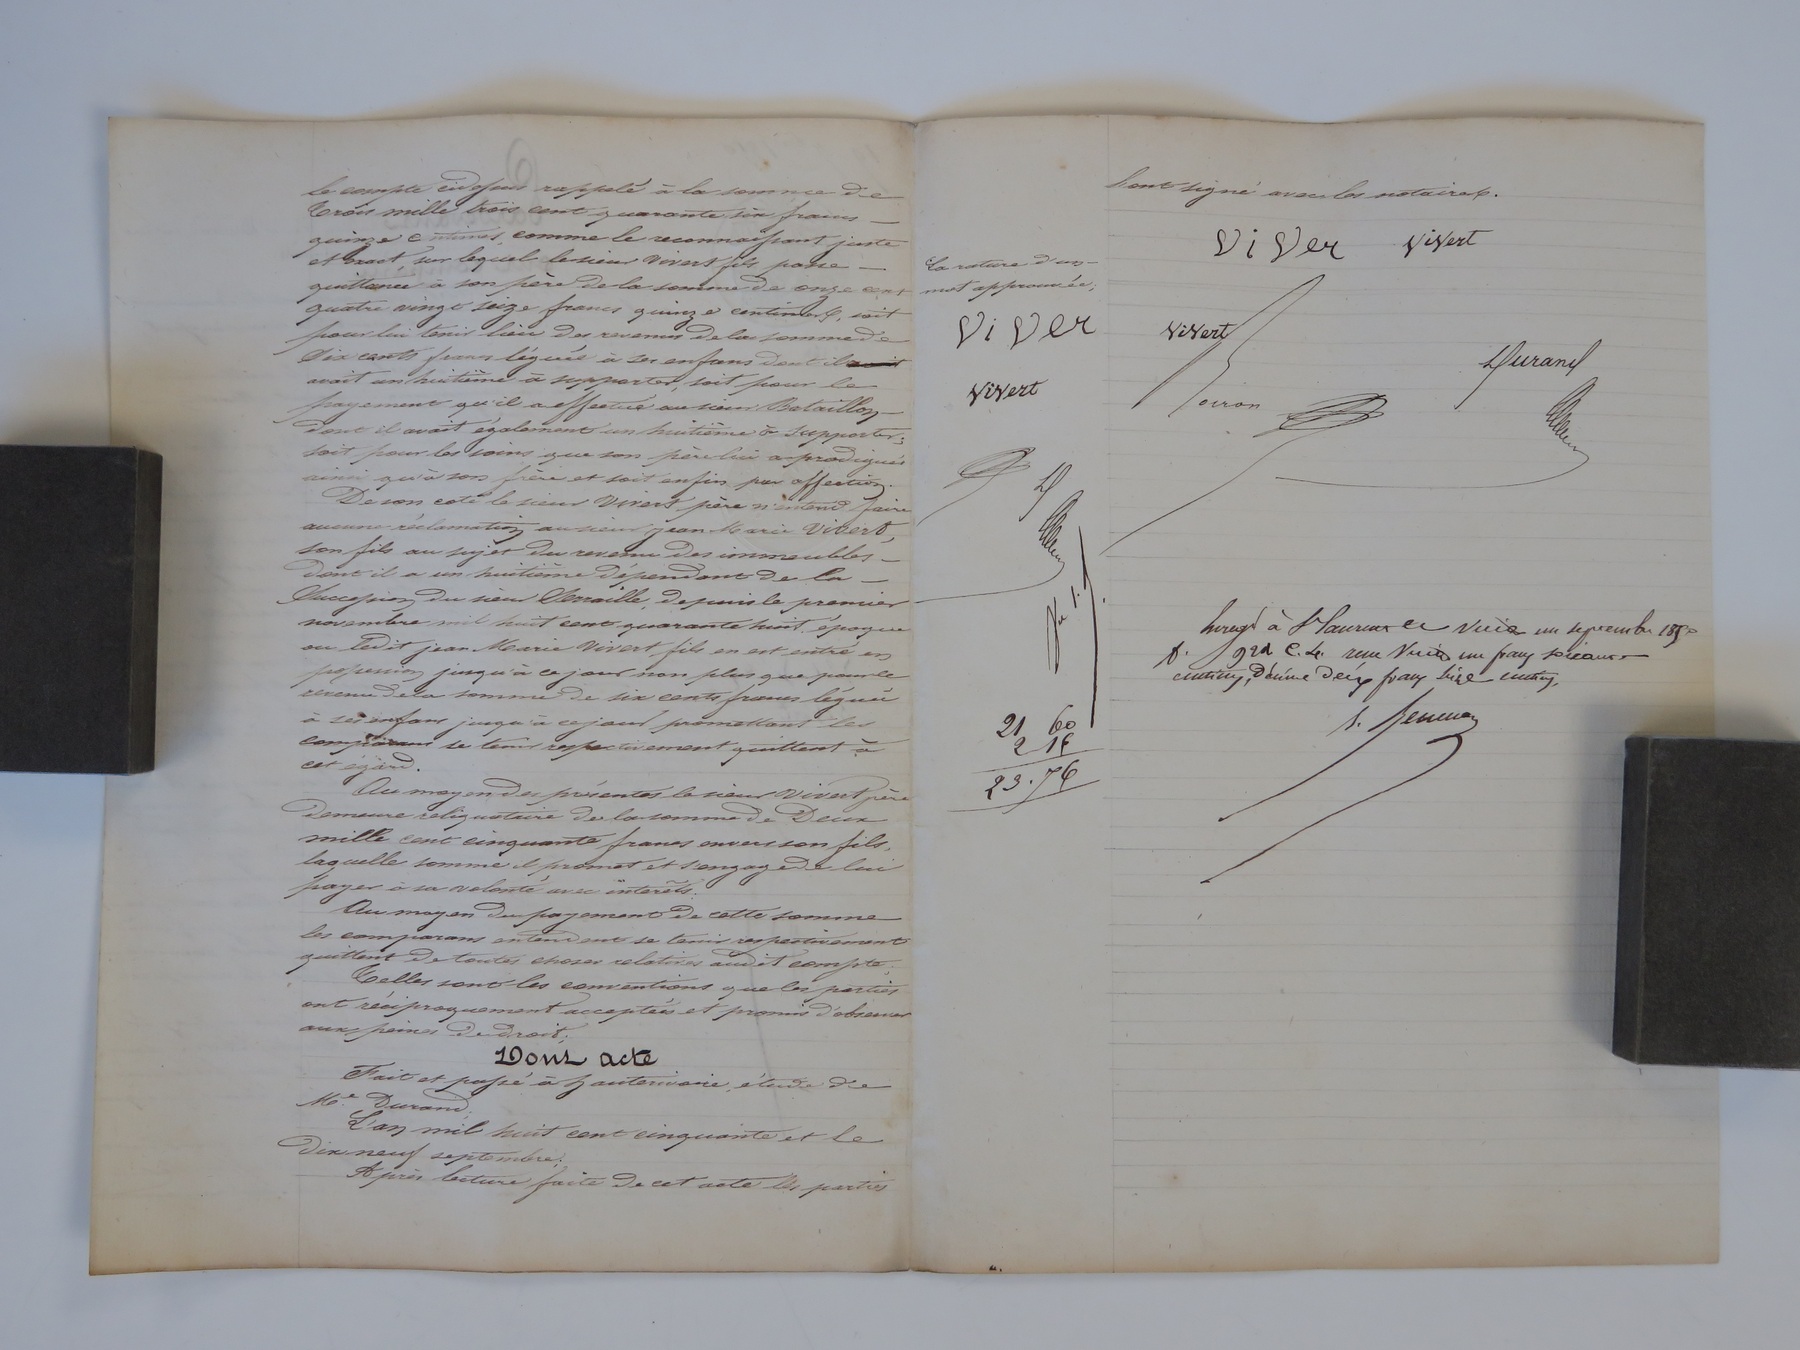 le compte cidessus rappelé à la somme de
Trois mille trois cent quarante six francs
quinze centimes, comme le reconnaissant juste
et exact sur lequel le sieur Vivert fils passe
quittance à son père de la somme de onze cent
quatre vingt seize francs quinze centimes, soit
pour lui tenir lieu des revenus de la somme de
Six cents francs léguée à ses enfans dont il
avait un huitième à supporter, soit pour le
payement qu'il a effectué au sieur Bataillon
dont il avait également un huitième à supporter;
soit pour les soins que son père lui a prodigués
ainsi qu'à son frère et soit enfin par affection.
De son coté le sieur Vivert père n'entend faire
aucune réclamation au sieur jean Marie Vivert,
son fils au sujet du revenu des immeubles
dont il a un huitième dépendant de la
Succession du sieur depuis le premier
novembre mil huit cent quarante huit, époque
ou ledit jean Marie Vivert fils en est entré en
possession jusqu'à ce jour non plus que pour le
revenu de la somme de six cents francs légués
à ses enfans jusqu'à ce jour promettant les
comparans se tenir respectivement quittent à
cet égard.
Au moyen des présentes le sieur Vivert père
demeure reliquataire de la somme de Deux
mille cent cinquante francs envers son fils,
laquelle somme il promet et s'engage de lui
payer à sa volonté avec intérêts.
Au moyen du payement de cette somme
les comparans entendent se tenir respectivement
quittent de toutes choses relatives audit compte.
Telles sont les conventions que les parties
ont réciproquement acceptées et promis d'observer
aux peines de droit;
Dont acte
Fait et passé à hauterivoire, étude de
Me Durand,
L'an mil huit cent cinquante et le
dix neuf septembre;
Après lecture faite de cet acte les parties
La rature d'un
mot approuvée;
ViVer
ViVert
D
21 60
2 16
23.76
Sont signé avec les notaires.
ViVer ViVert
ViVert
Durand
Coiron
Enregé à St Laurent le vingt un septembre 1850
fo 92d C. 4. reçu vingt un francs soixante
centimes, décime deux francs seize centimes